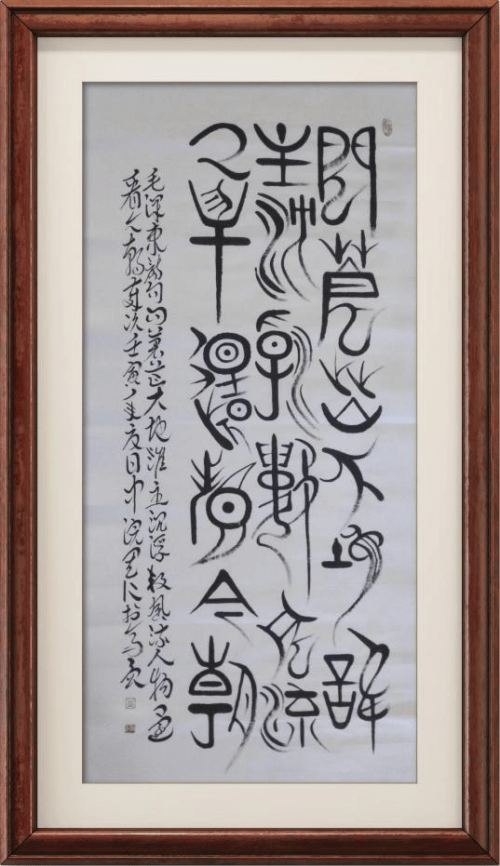 問蒼茫大地誰
主沉浮數風流
人物還看今朝
毛澤東詩句問蒼茫大地誰主沉浮數風流人物還
看今朝歲次壬寅年夏日中浣